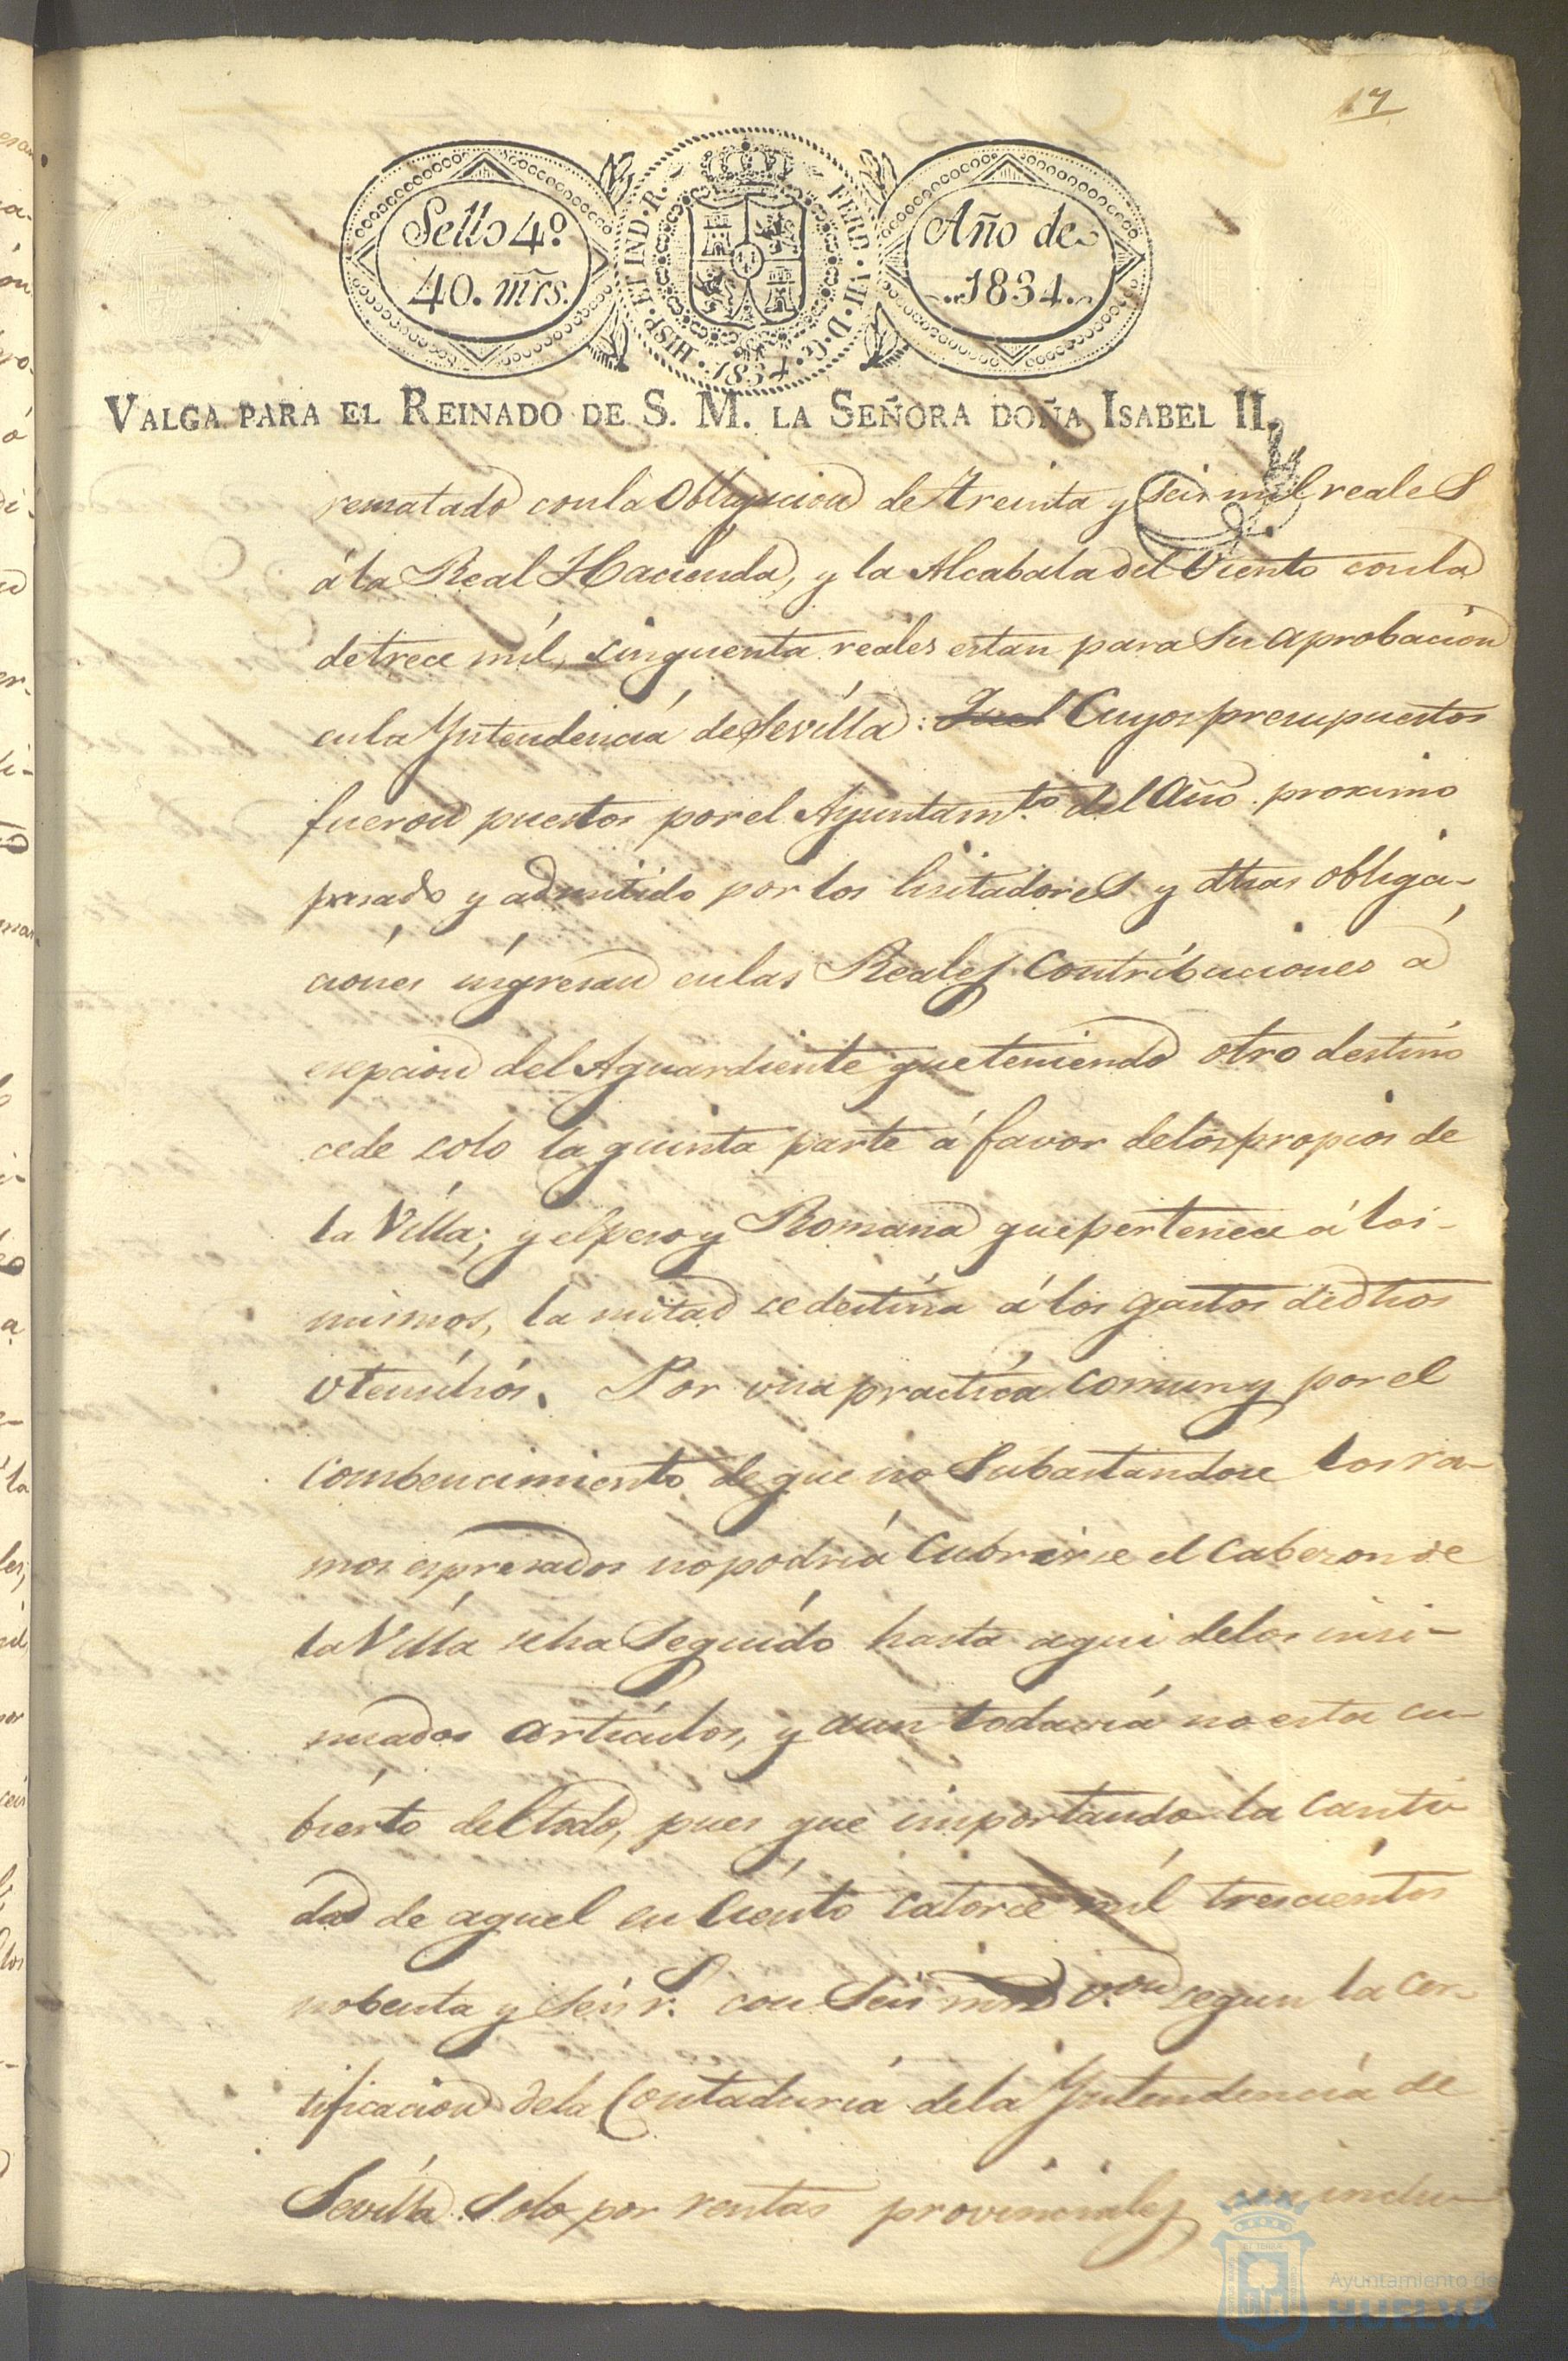 17
Sello 4º
40. mrs.
HISP. ET IND. R.
FERD. VII. D. G.
1834
Año de
1834.
VALGA PARA EL REINADO DE S. M. LA SEÑORA DOÑA ISABEL II.
rematado con la Obligacion de treinta y seis mil reales
á la Real Hacienda, y la Alcabala del Viento con la
de trece mil, cinquenta reales estan para su aprobacion
en la Yntendencia de Sevilla: Cuyos presupuestos
fueron puestos por el Ayuntamto. del Año proximo
pasado y admitido por los lisitadores y dhas obliga-
ciones ingresan en las Reales Contribuciones á
esepcion del Aguardiente que teniendo otro destino
cede solo la quinta parte á favor de los propios de
la Villa; y el peso y Romana que pertenece á los
mismos, la mitad se destina á los gastos de dhos
utensilios. Por una practica comun y por el
combencimiento de que no Subastandose los ra-
mos espresados no podria Cubrirse el Cabezon de
la Villa se ha Seguido hasta aqui de los insi-
nuados articulos, y aun todavia no esta cu-
bierto del todo, pues que importando la canti-
dad de aquel en Ciento catorce mil trescientos
nobenta y seis r.s con Seis mrs v.on segun la Cer-
tificacion de la Contaduria de la Yntendencia de
Sevilla Solo por rentas provinciales sin inclu-
Ayuntamiento de
HUELVA